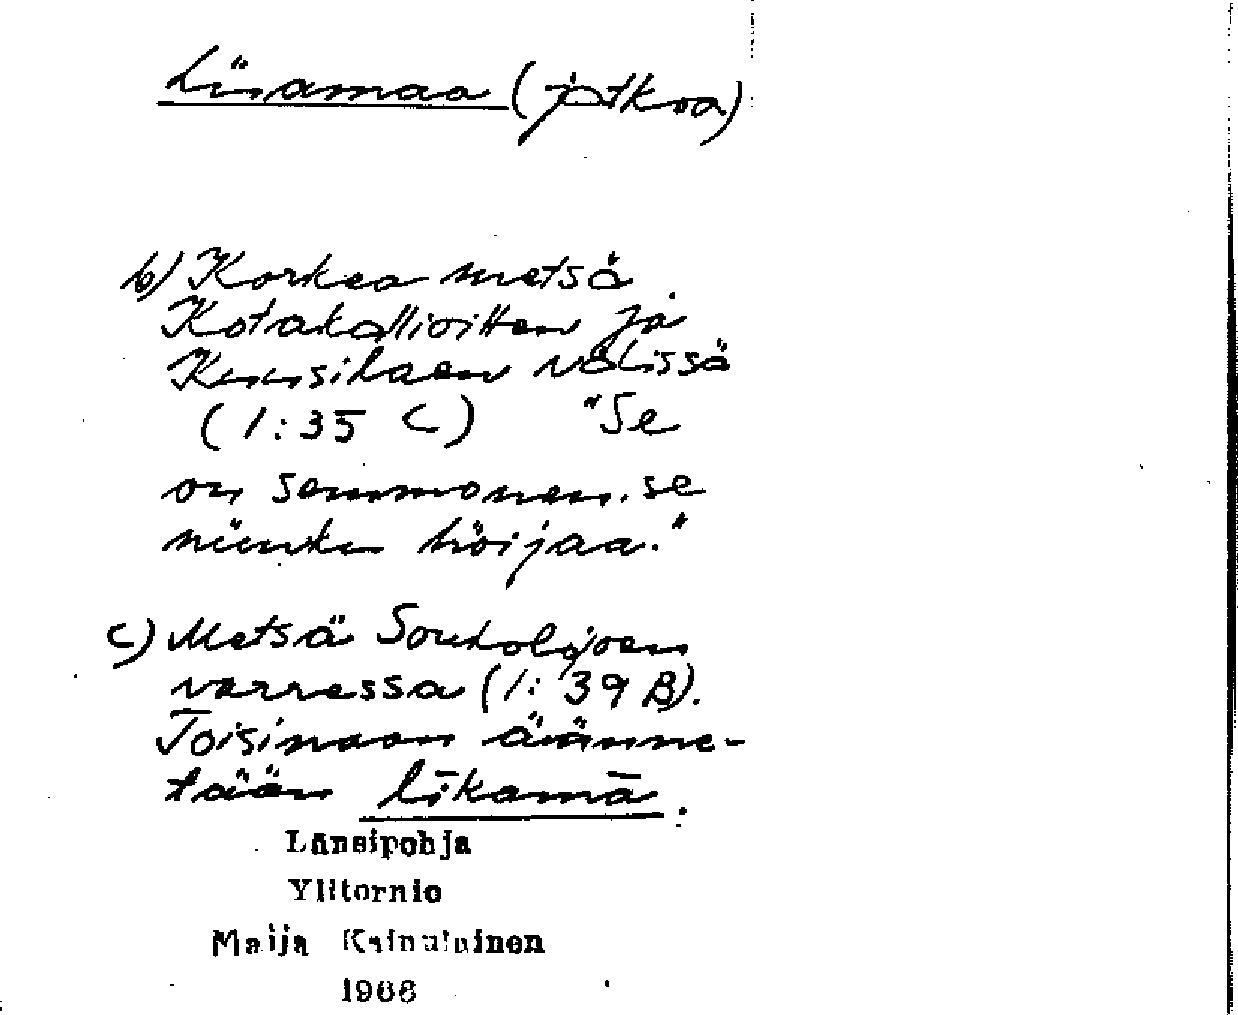 Liiamaa (jatkoa)
b) Korkea metsä
Kotakallioitten ja
Kuusihaen välissä
(1:35 C) "Se
on semmonen, se
niinku höijaa."
c) Metsä Soukolojoen
varressa (1:39 B).
Toisinaan äänne-
tään līkamā.
Länsipohja
Ylitornio
Maija Kainulainen
1966